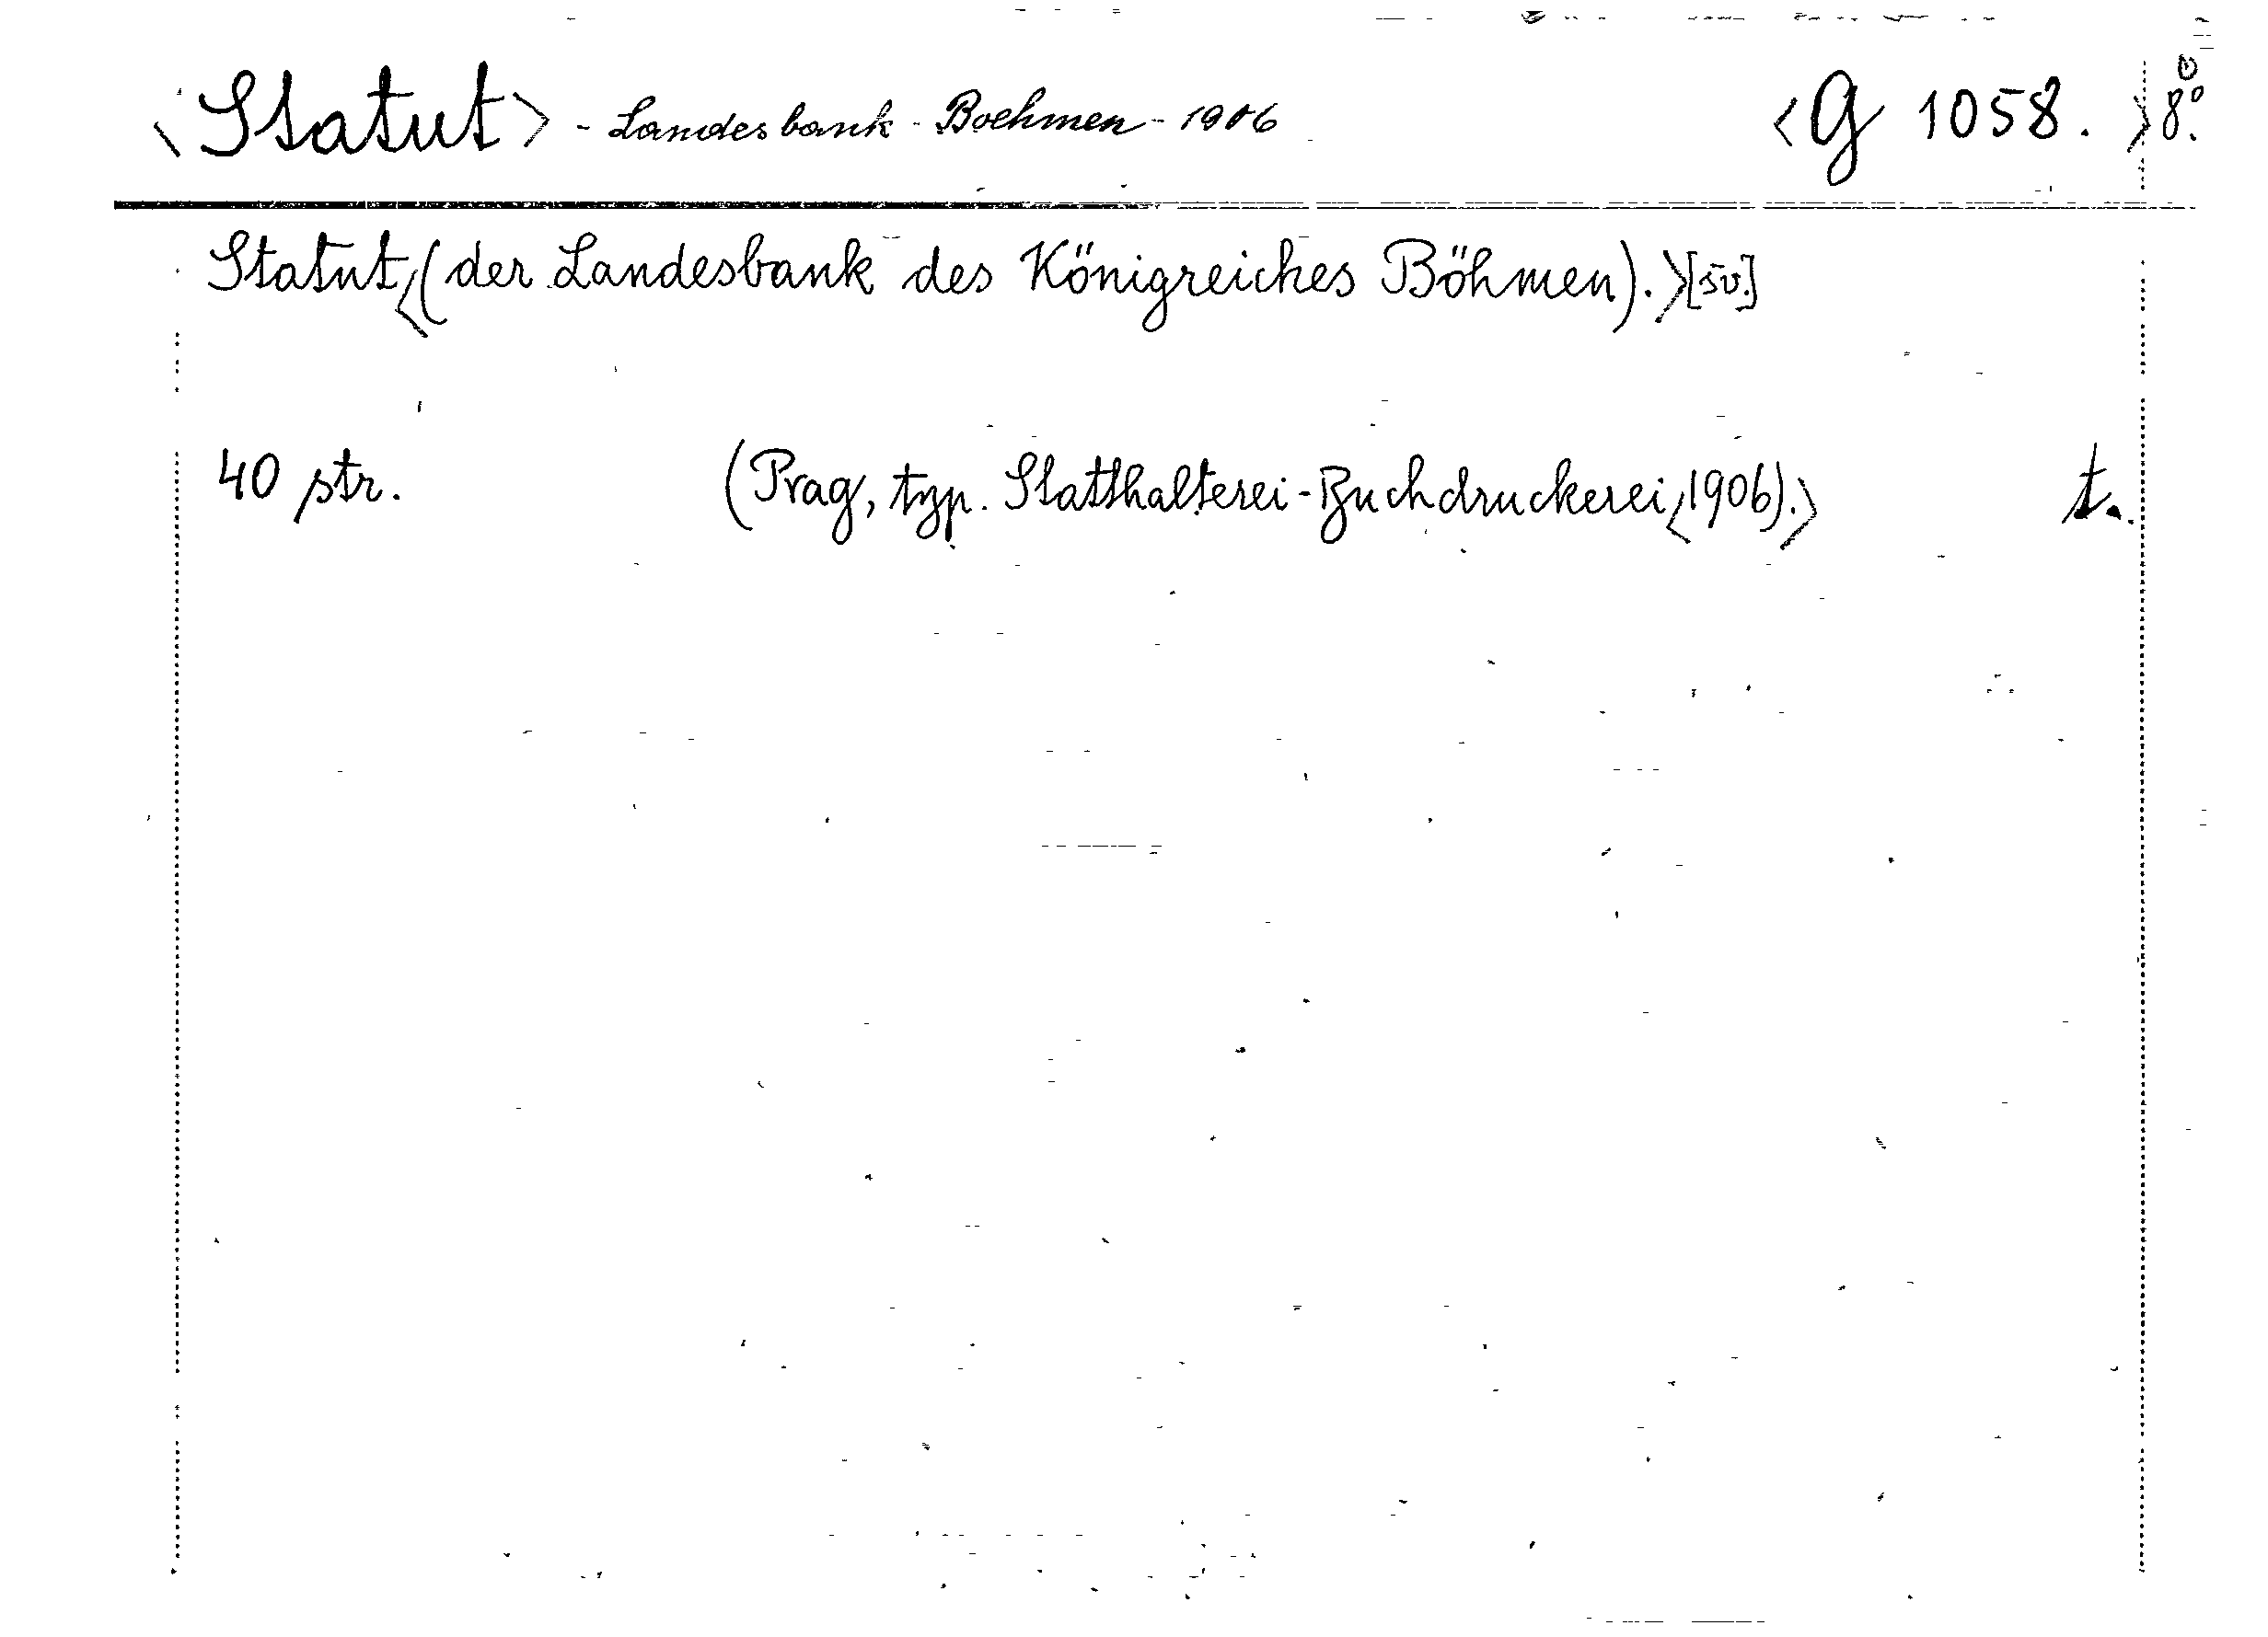 <Statut> - Landesbank - Boehmen - 1906 <G 1058.> 8°.
Statut<(der Landesbank des Königreiches Böhmen).>[sv.]
40 str. (Prag, typ. Statthalterei-Buchdruckerei<1906).> t.